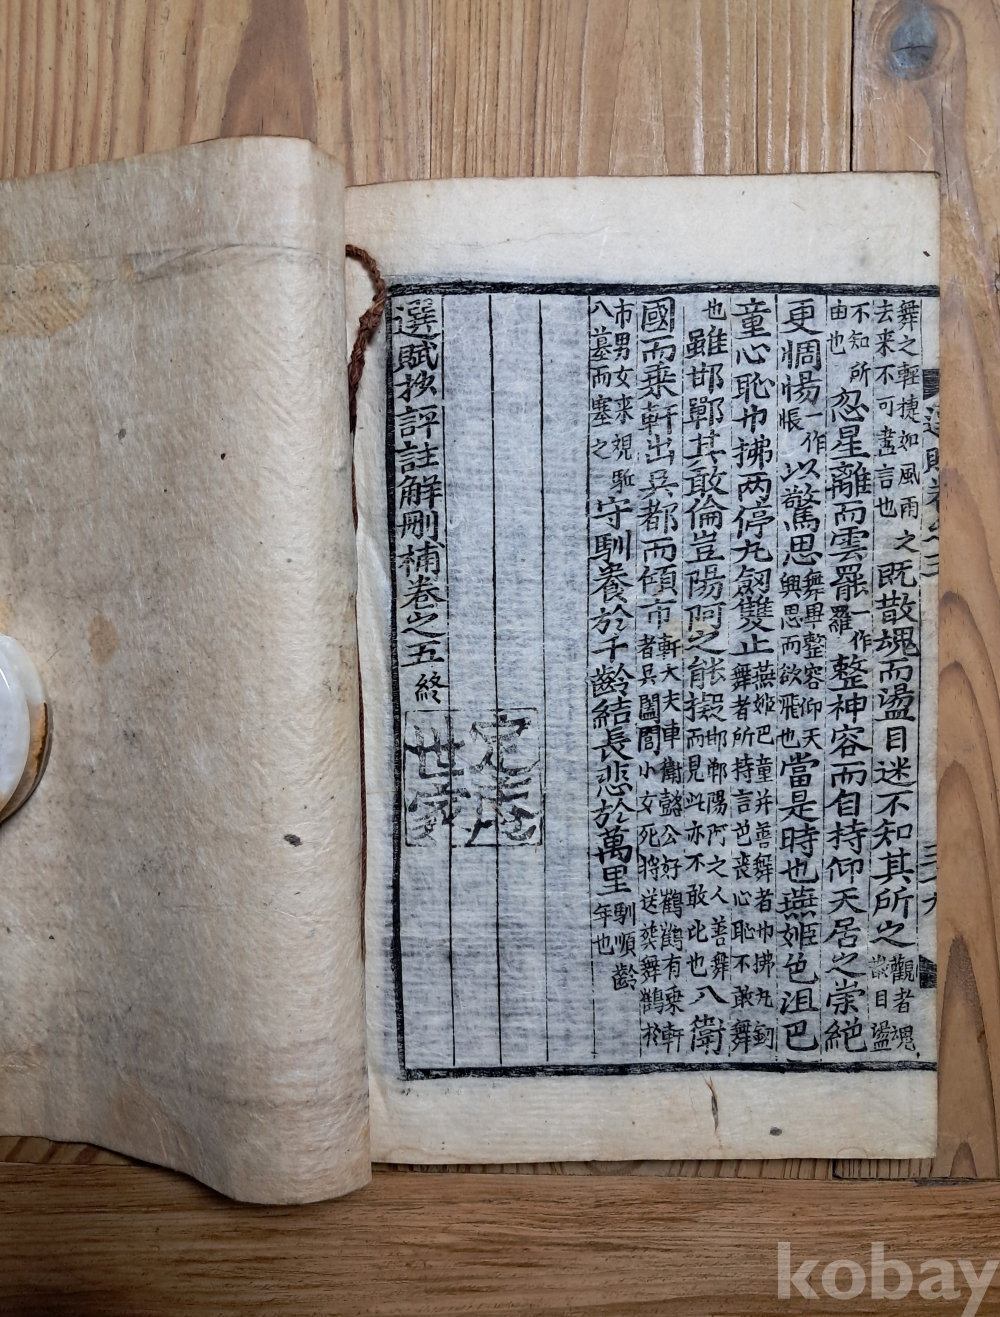 舞之輕捷如風雨
去来不可盡言也
之既散魂而盪目迷不知其所之
觀者魂
散目盪
不知所
由也
忽星離而雲罷
一作
羅
整神容而自持仰天居之崇絕
更惆悵
一作
悵
以驚思
舞畢整容仰天
興思而欲飛也
當是時也燕姬色沮巴
童心恥巾拂两停丸劔雙止
燕姬巴童并善舞者巾拂丸劔
舞者所持言色喪心恥不敢舞
也
雖邯鄲其敢倫豈陽阿之能擬
邯鄲陽阿之人善舞
而見此亦不敢比也
入衛
國而乗軒出吳都而傾市
軒大夫車衛懿公好鶴鶴有乗軒
者吳闔閭小女死将送葬舞鶴於
市男女来視
八墓而塞之
守馴養於千齡結長悲於萬里
馴順齡
年也
選賦抄評註解刪補卷之五
終
定菴
世家
三十九